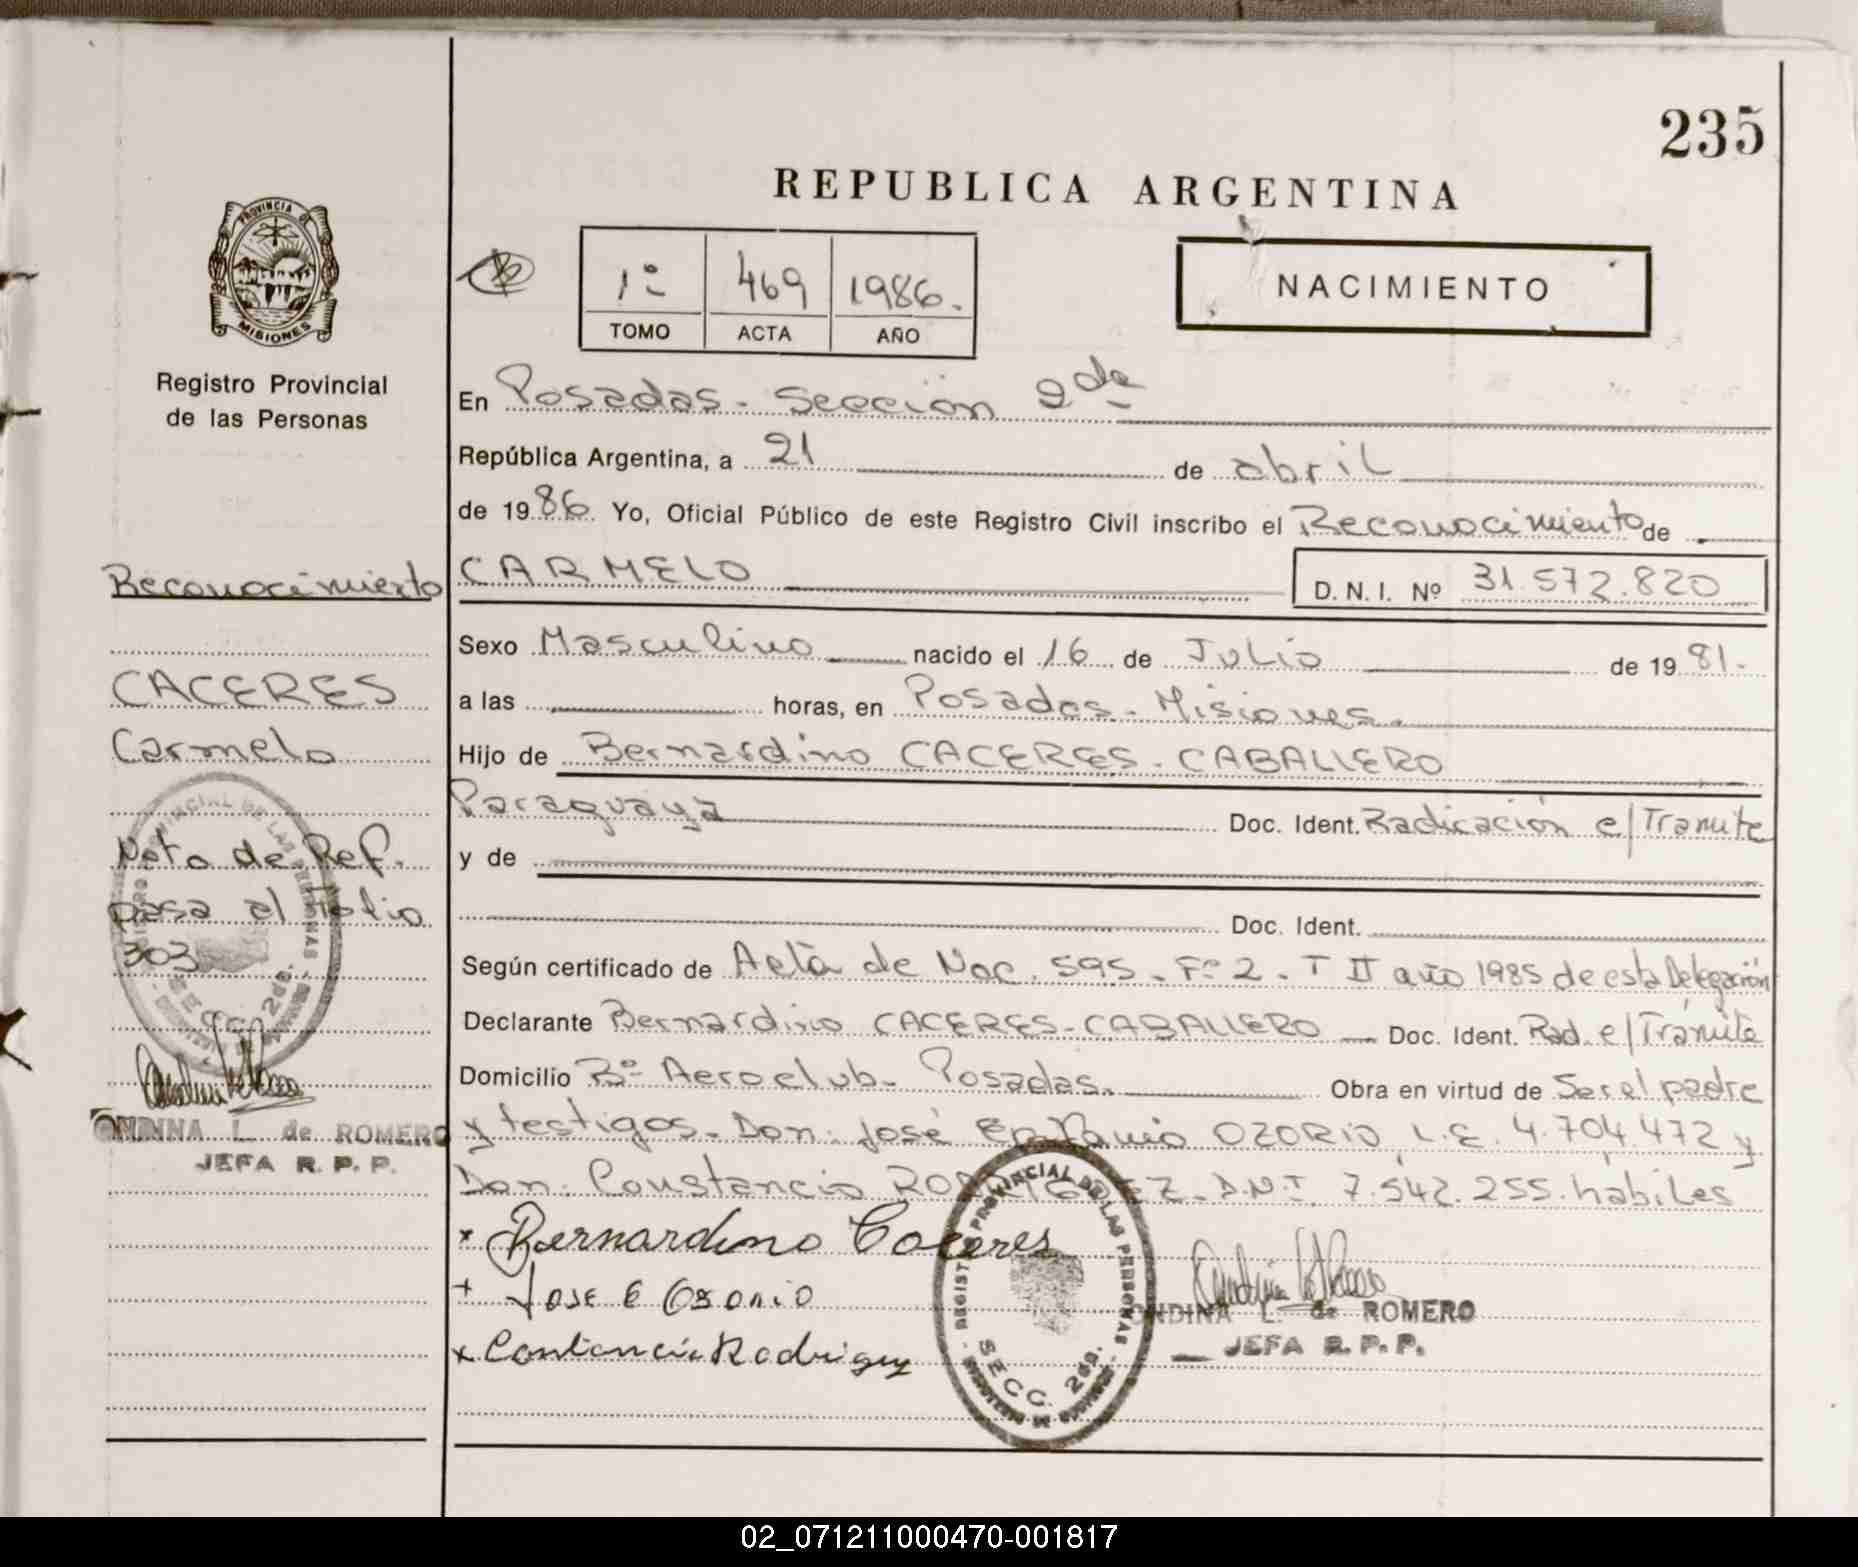 235
REPUBLICA ARGENTINA
PROVINCIA DE
MISIONES
Registro Provincial
de las Personas
1º 469 1986.
TOMO ACTA AÑO
NACIMIENTO
En Posadas. Sección 2da
República Argentina, a 21 de abril
de 1986 Yo, Oficial Público de este Registro Civil inscribo el Reconocimiento de
CARMELO D. N. I. Nº 31.572.820
Sexo Masculino nacido el 16 de Julio de 1981.
a las horas, en Posadas. Misiones.
Hijo de Bernardino CACERES. CABALLERO
Paraguaya Doc. Ident. Radicación e/Tramite
y de
Doc. Ident.
Según certificado de Acta de Nac. 595. Fº 2. T II año 1985 de esta Delegación
Declarante Bernardino CACERES-CABALLERO Doc. Ident. Rad. e/Trámite
Domicilio Bº Aeroclub. Posadas. Obra en virtud de Ser el padre
y testigos. Don. José Epifanio OZORIO L.E. 4.704.472 y
Don. Constancio RODRIGUEZ. D.N.I 7.542.255. hábiles
x Bernardino Caceres
+ Jose E Osorio
x Constancio Rodriguez
REGISTRO PROVINCIAL DE LAS PERSONAS
SECC. 2da.
ONDINA L. de ROMERO
JEFA R. P. P.
Reconocimiento
CACERES
Carmelo
Nota de Ref.
pasa al Folio
303
REGISTRO PROVINCIAL DE LAS PERSONAS
SECC. 2da.
ONDINA L. de ROMERO
JEFA R. P. P.
02_071211000470-001817